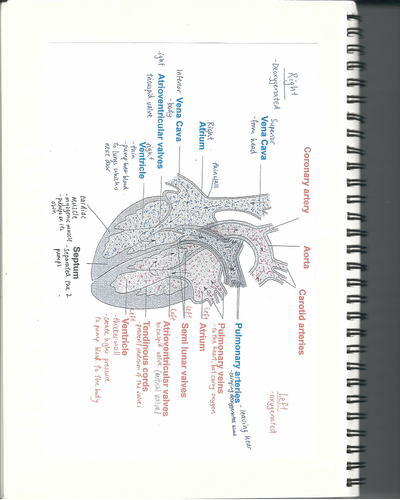 Right
-Deoxygenated
Superior
Vena Cava
-from head
Right
Atrium
thin wall
Inferior Vena Cava
-body
right
Atrioventricular valves
tricuspid valve
right
Ventricle
-thin
-pump
to lungs which is
next door
cardiac
muscle
-myogenic muscle
Septum
-separated the 2
pumps
Coronary artery
Aorta
Carotid arteries
Left
-oxygenated
Pulmonary arteries
-leaving
Pulmonary veins
-to the heart, but carry oxygen
Left
Atrium
Left
Semi lunar valves
Left
Atrioventricular valves
bicuspid valve (mitral valve)
Tendinous cords
-prevent inversion of the valves
Left
Ventricle
-thicker wall
-create higher pressure
to pump blood to the body